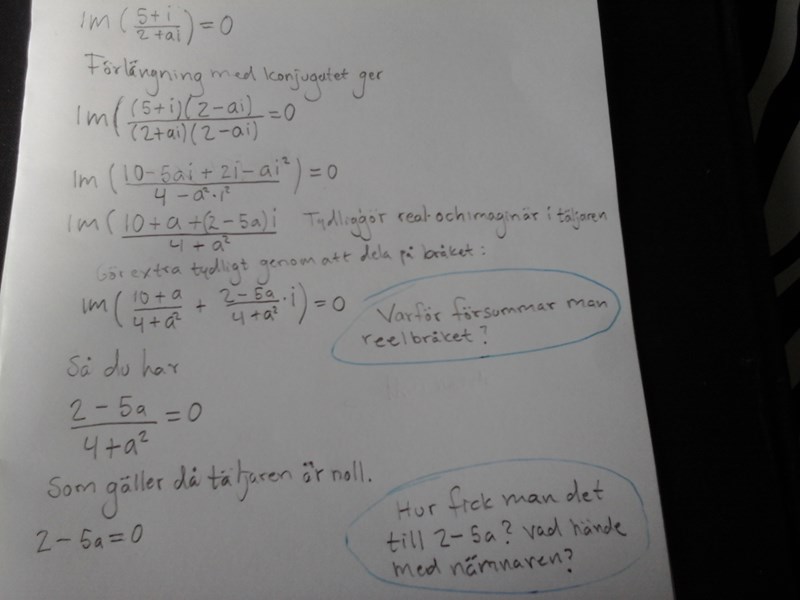 Im(5+i/2+ai)=0
Förlängning med konjugatet ger
Im((5+i)(2-ai)/(2+ai)(2-ai))=0
Im(10-5ai+2i-ai²/4-a²·i²)=0
Im(10+a+(2-5a)i/4+a² Tydliggör real- och imaginär i täljaren
Gör extra tydligt genom att dela på bråket:
Im(10+a/4+a² + 2-5a/4+a²·i)=0
Varför försummar man
reelbråket?
Så du har
2-5a/4+a²=0
Som gäller då täljaren är noll.
2-5a=0
Hur fick man det
till 2-5a? vad hände
med nämnaren?